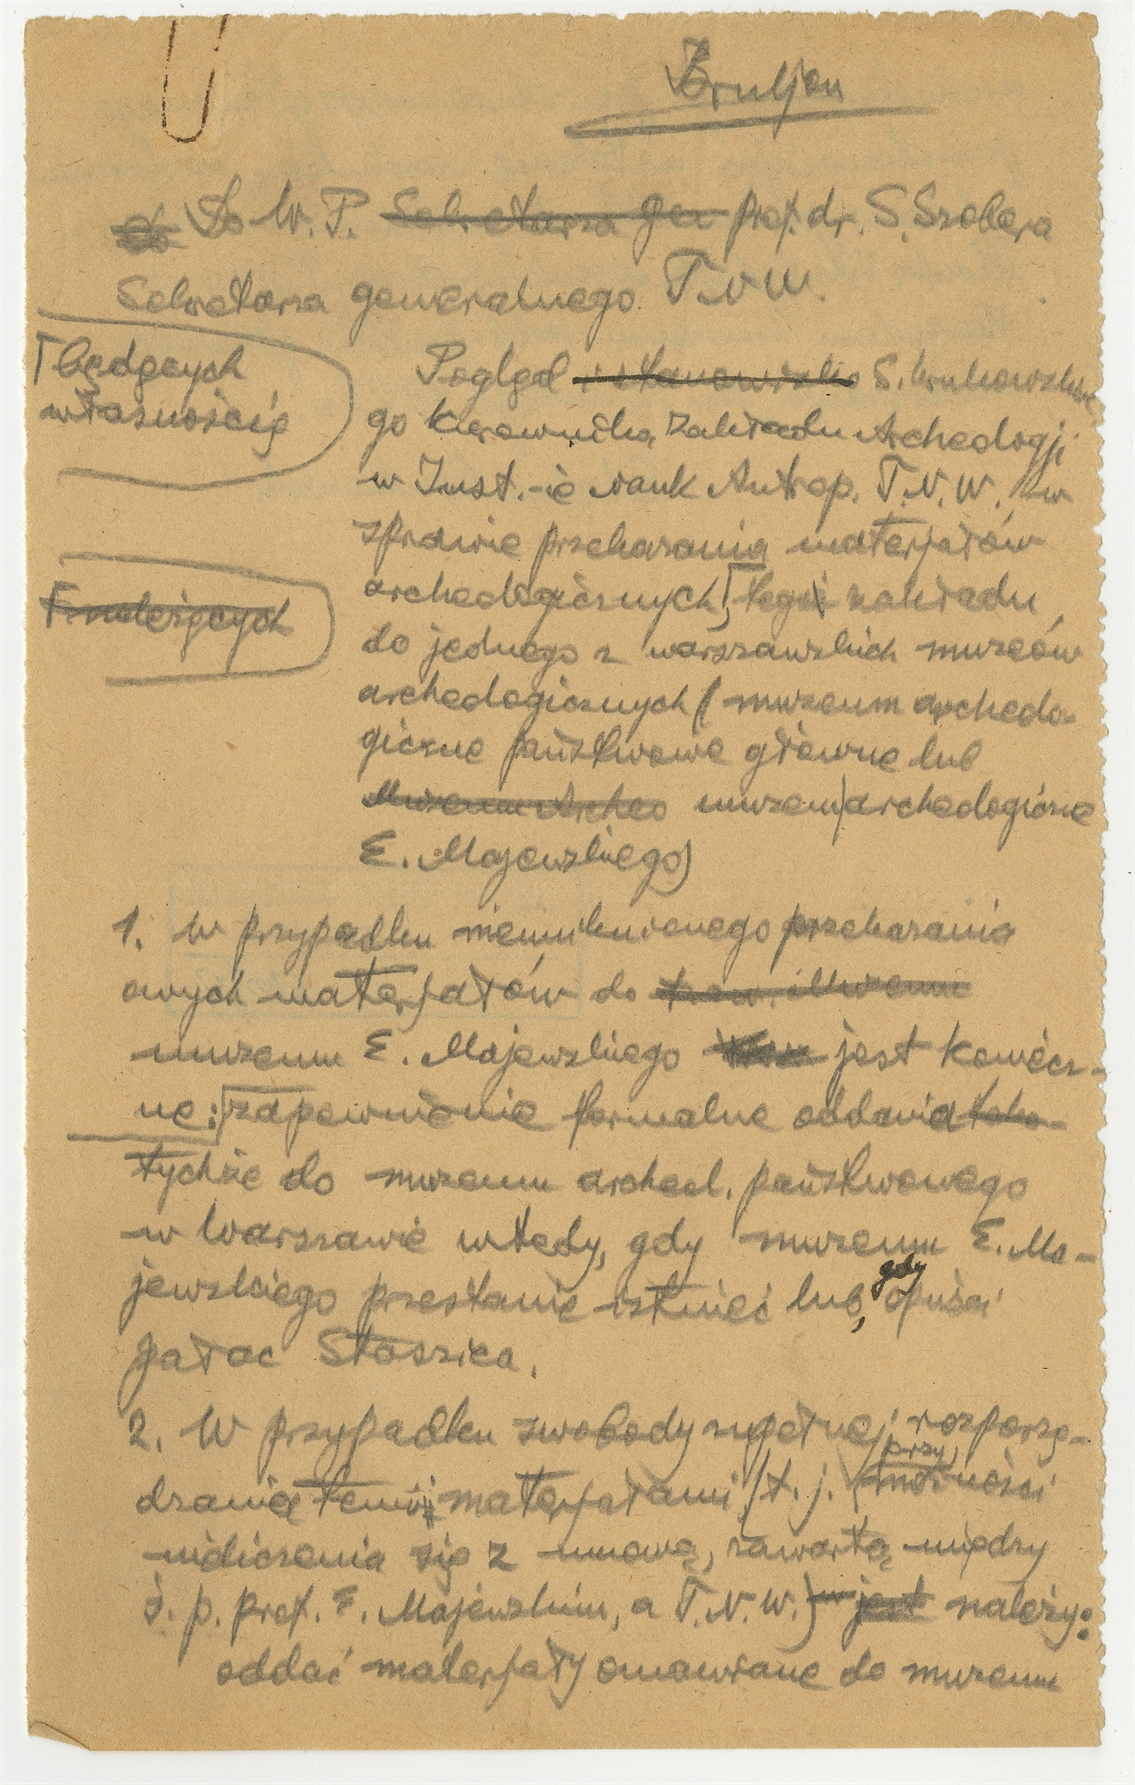 Bruljon
Do W. P. Sekretarza gen prof. dr. S. Szobera
Sekretarza generalnego T.N.W.
będących
własnością
Pogląd i stanowisko S. Krukowskie
go Kierownika Zakładu Archeologji
w Inst.-ie Nauk Antrop. T.N.W. w
sprawie przekazania materjałów
archeologicznych tegoż zakładu
należących
do jednego z warszawskich muzeów
archeologicznych (muzeum archeolo-
giczne państwowe główne lub
Muzeum Archeo muzeum archeologiczne
E. Majewskiego)
1. W przypadku nieuniknionego przekazania
owych materjałów do Muzeum
muzeum E. Majewskiego jest koniecz-
ne: zapewnienie formalne oddania
tychże do muzeum archeol. państwowego
w Warszawie wtedy, gdy muzeum E. Ma-
jewskiego przestanie istnieć lub, gdy opuści
pałac Staszica.
2. W przypadku swobody zupełnej rozporzą-
dzania temiż materjałami (t. j. przy możności
nieliczenia się z umową, zawartą między
ś. p. prof. E. Majewskim, a T.N.W.) jest należy:
oddać materjały omawiane do muzeum